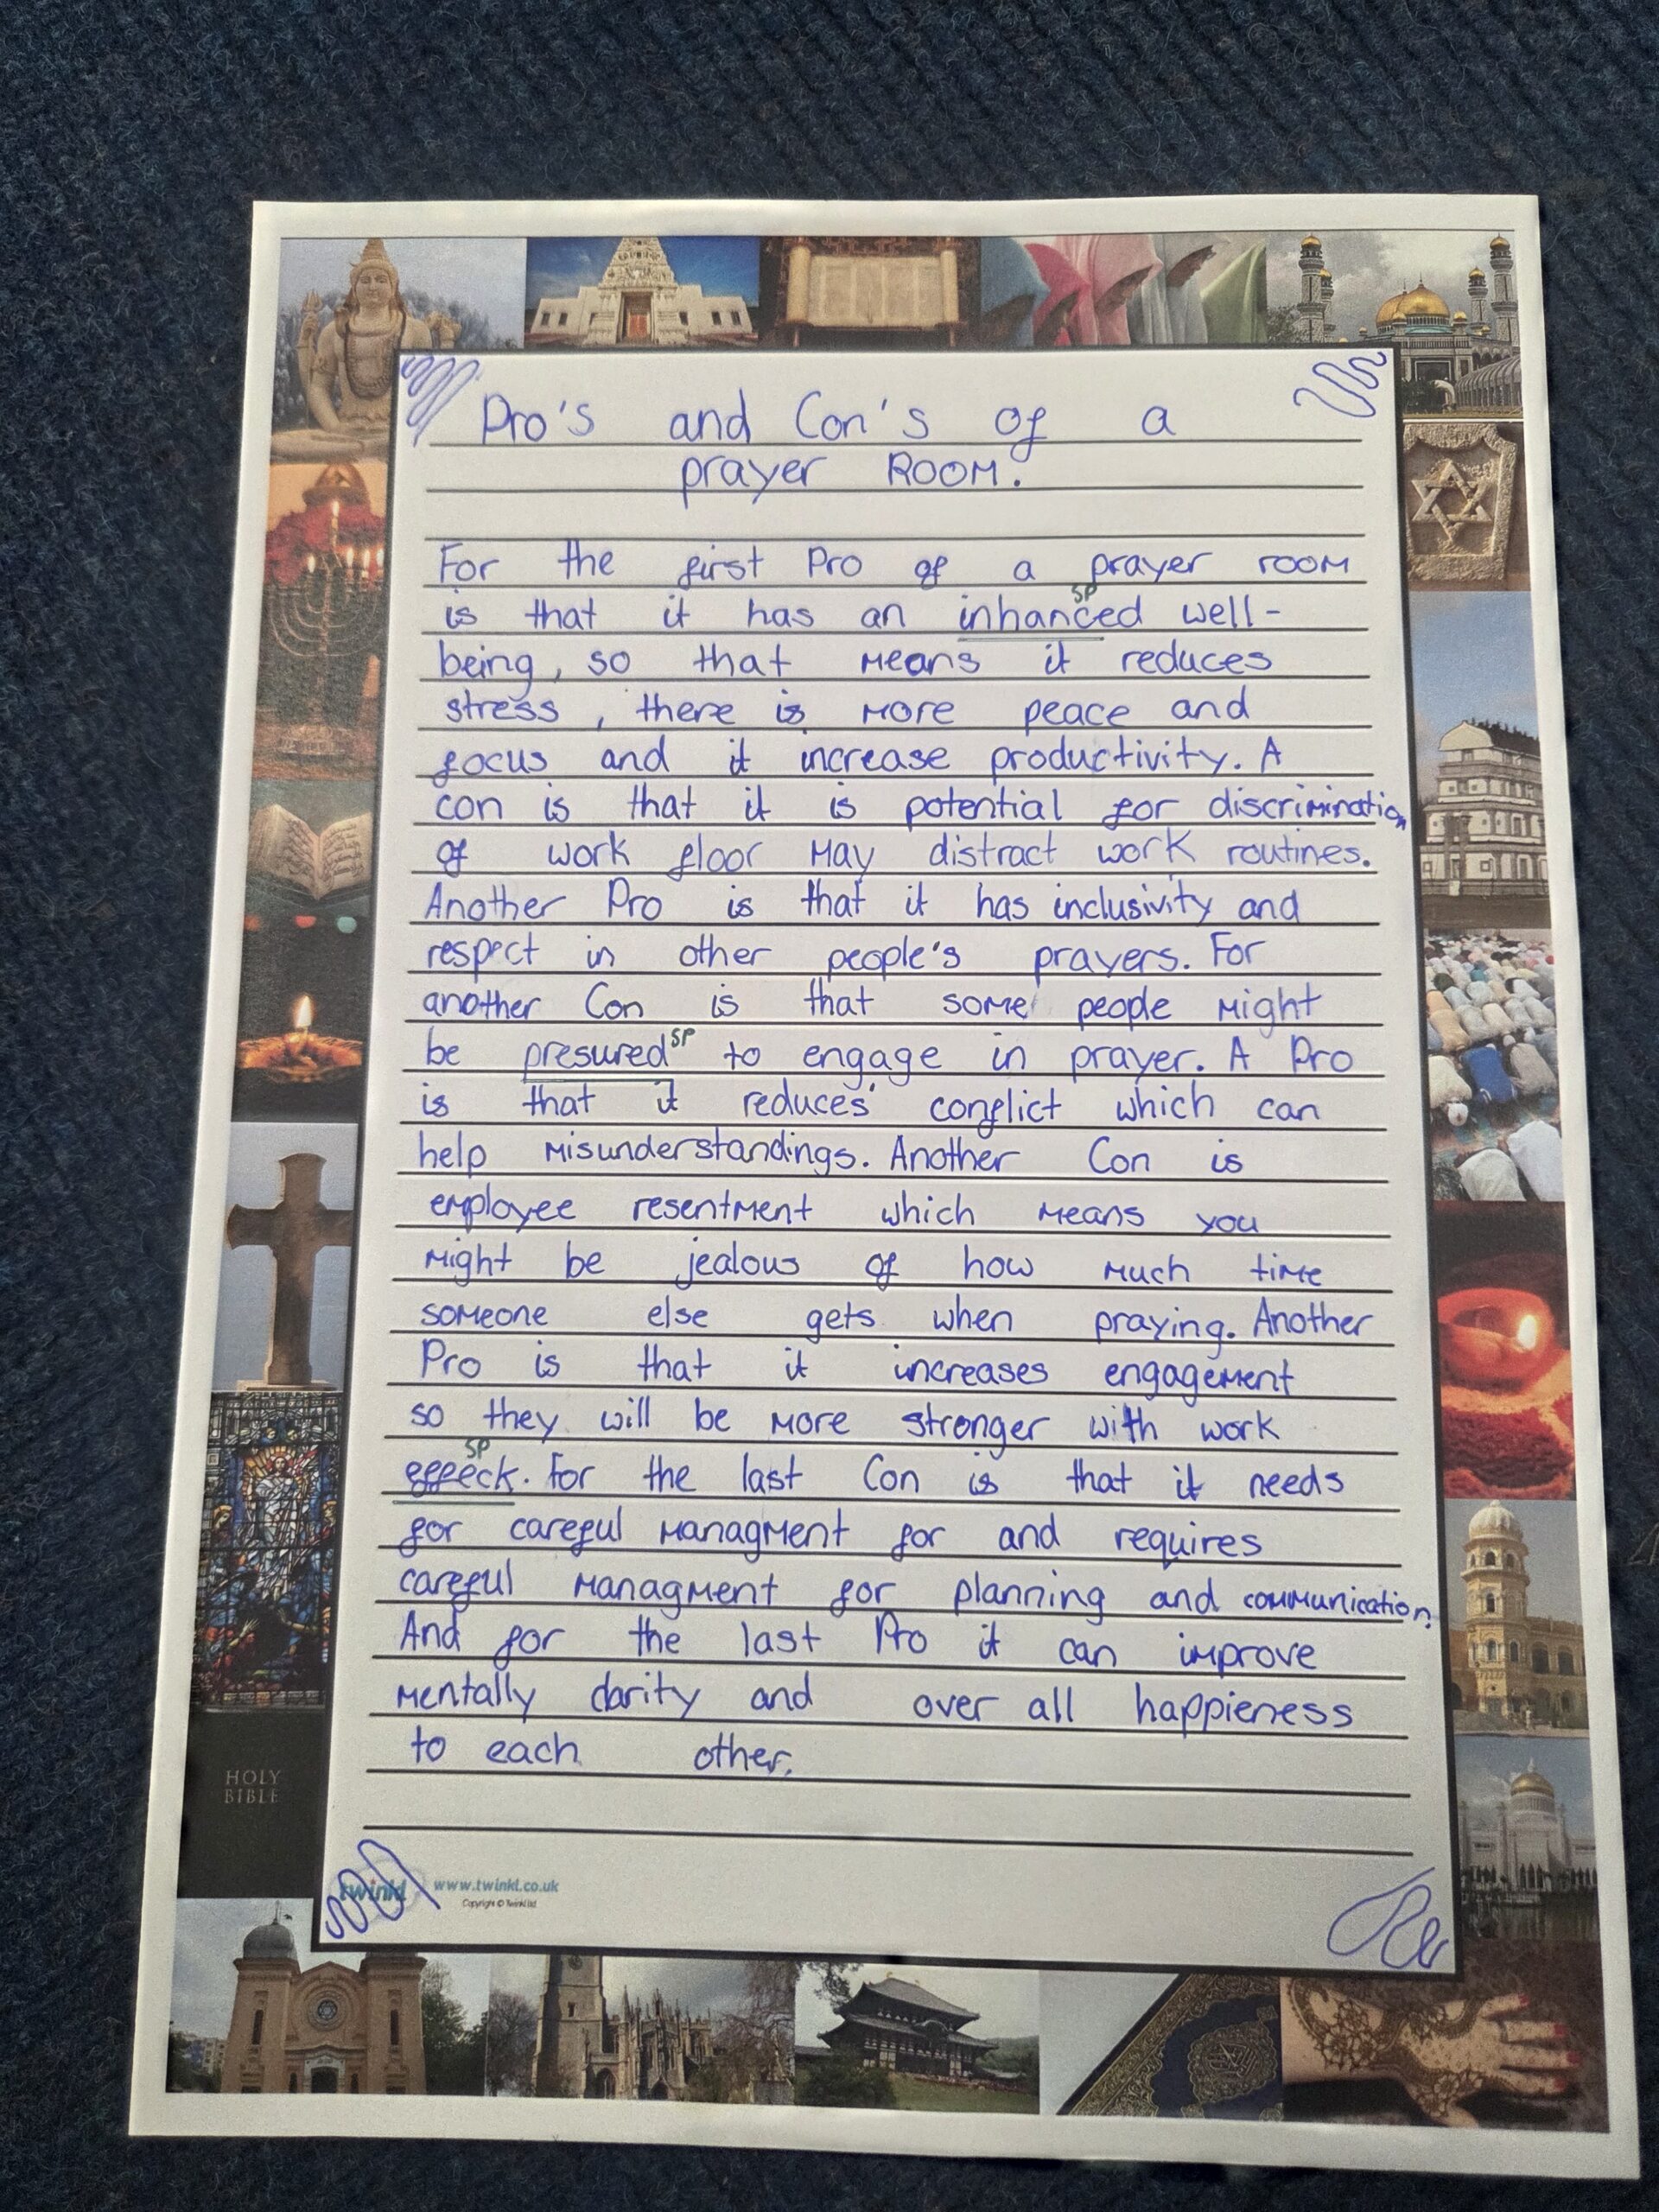 Pro's and Con's of a
prayer ROOM.
For the first Pro of a prayer room
SP
is that it has an inhanced well-
being, so that means it reduces
stress, there is more peace and
focus and it increase productivity. A
con is that it is potential for discrimination
of work floor may distract work routines.
Another Pro is that it has inclusivity and
respect in other people's prayers. For
another Con is that some people might
be presured SP to engage in prayer. A Pro
is that it reduces conflict which can
help misunderstandings. Another Con is
employee resentment which means you
might be jealous of how much time
someone else gets when praying. Another
Pro is that it increases engagement
so they will be more stronger with work
SP
effeck. For the last Con is that it needs
for careful managment for and requires
careful managment for planning and communication.
And for the last Pro it can improve
mentally clarity and over all happieness
to each other.
twinkl www.twinkl.co.uk
Copyright © Twinkl Ltd
HOLY
BIBLE